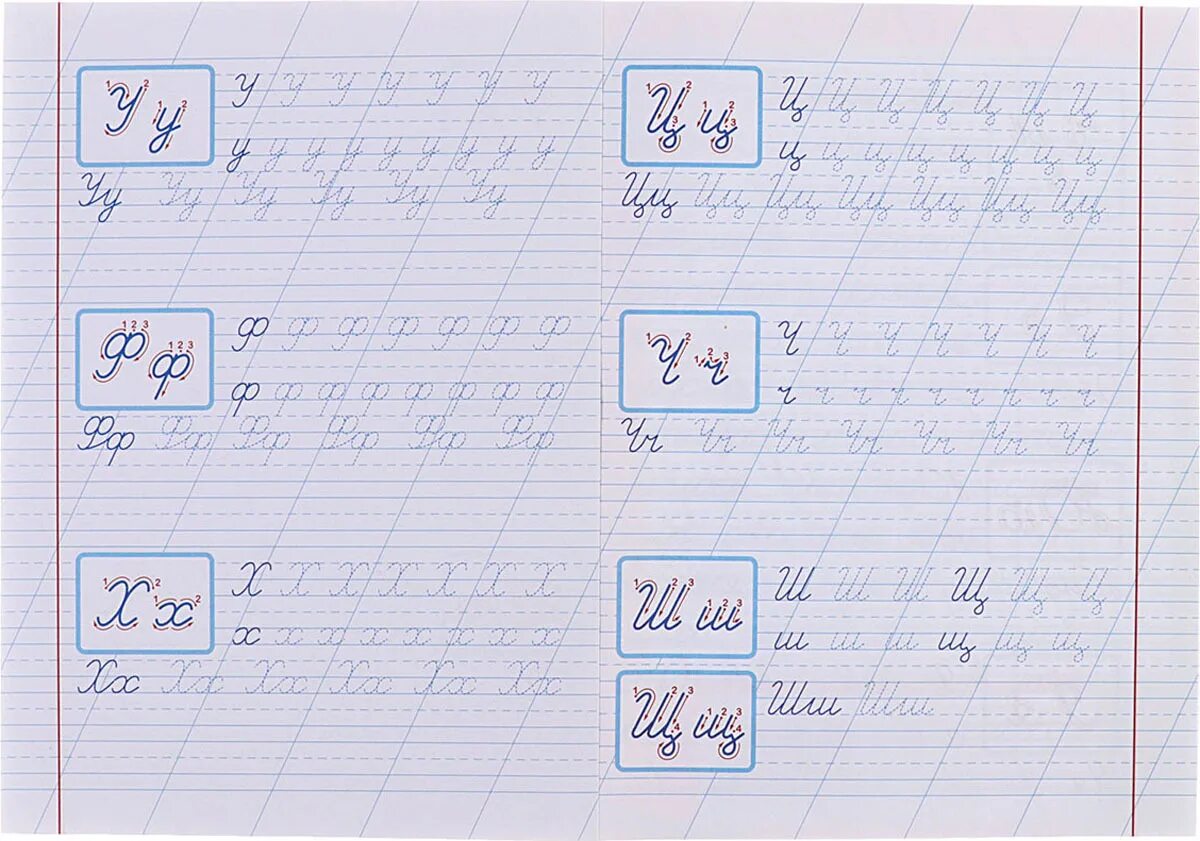 1 2 1 2
У у
У У У У У У У
у у у у у у у у у
Уу Уу Уу Уу Уу Уу
1 2 3 1 2 3
Ф ф
Ф Ф Ф Ф Ф Ф Ф
ф ф ф ф ф ф ф ф ф
Фф Фф Фф Фф Фф Фф
1 2 1 2
Х х
Х Х Х Х Х Х Х
х х х х х х х х
Хх Хх Хх Хх Хх Хх
1 2 3 1 2 3
Ц ц
Ц Ц Ц Ц Ц Ц Ц
ц ц ц ц ц ц ц ц
Цц Цц Цц Цц Цц Цц Цц
1 2 1 2 3
Ч ч
Ч Ч Ч Ч Ч Ч Ч
ч ч ч ч ч ч ч ч ч
Чч Чч Чч Чч Чч Чч Чч
1 2 3 1 2 3
Ш ш
Ш Ш Ш Щ Щ Ц
ш ш ш щ щ щ
1 2 3 4 1 2 3 4
Щ щ
Шш Шш